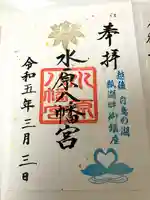 奉拝
越後 白鳥の湖
瓢湖畔御鎮座
水原八幡宮
水原八幡宮
令和五年三月三日